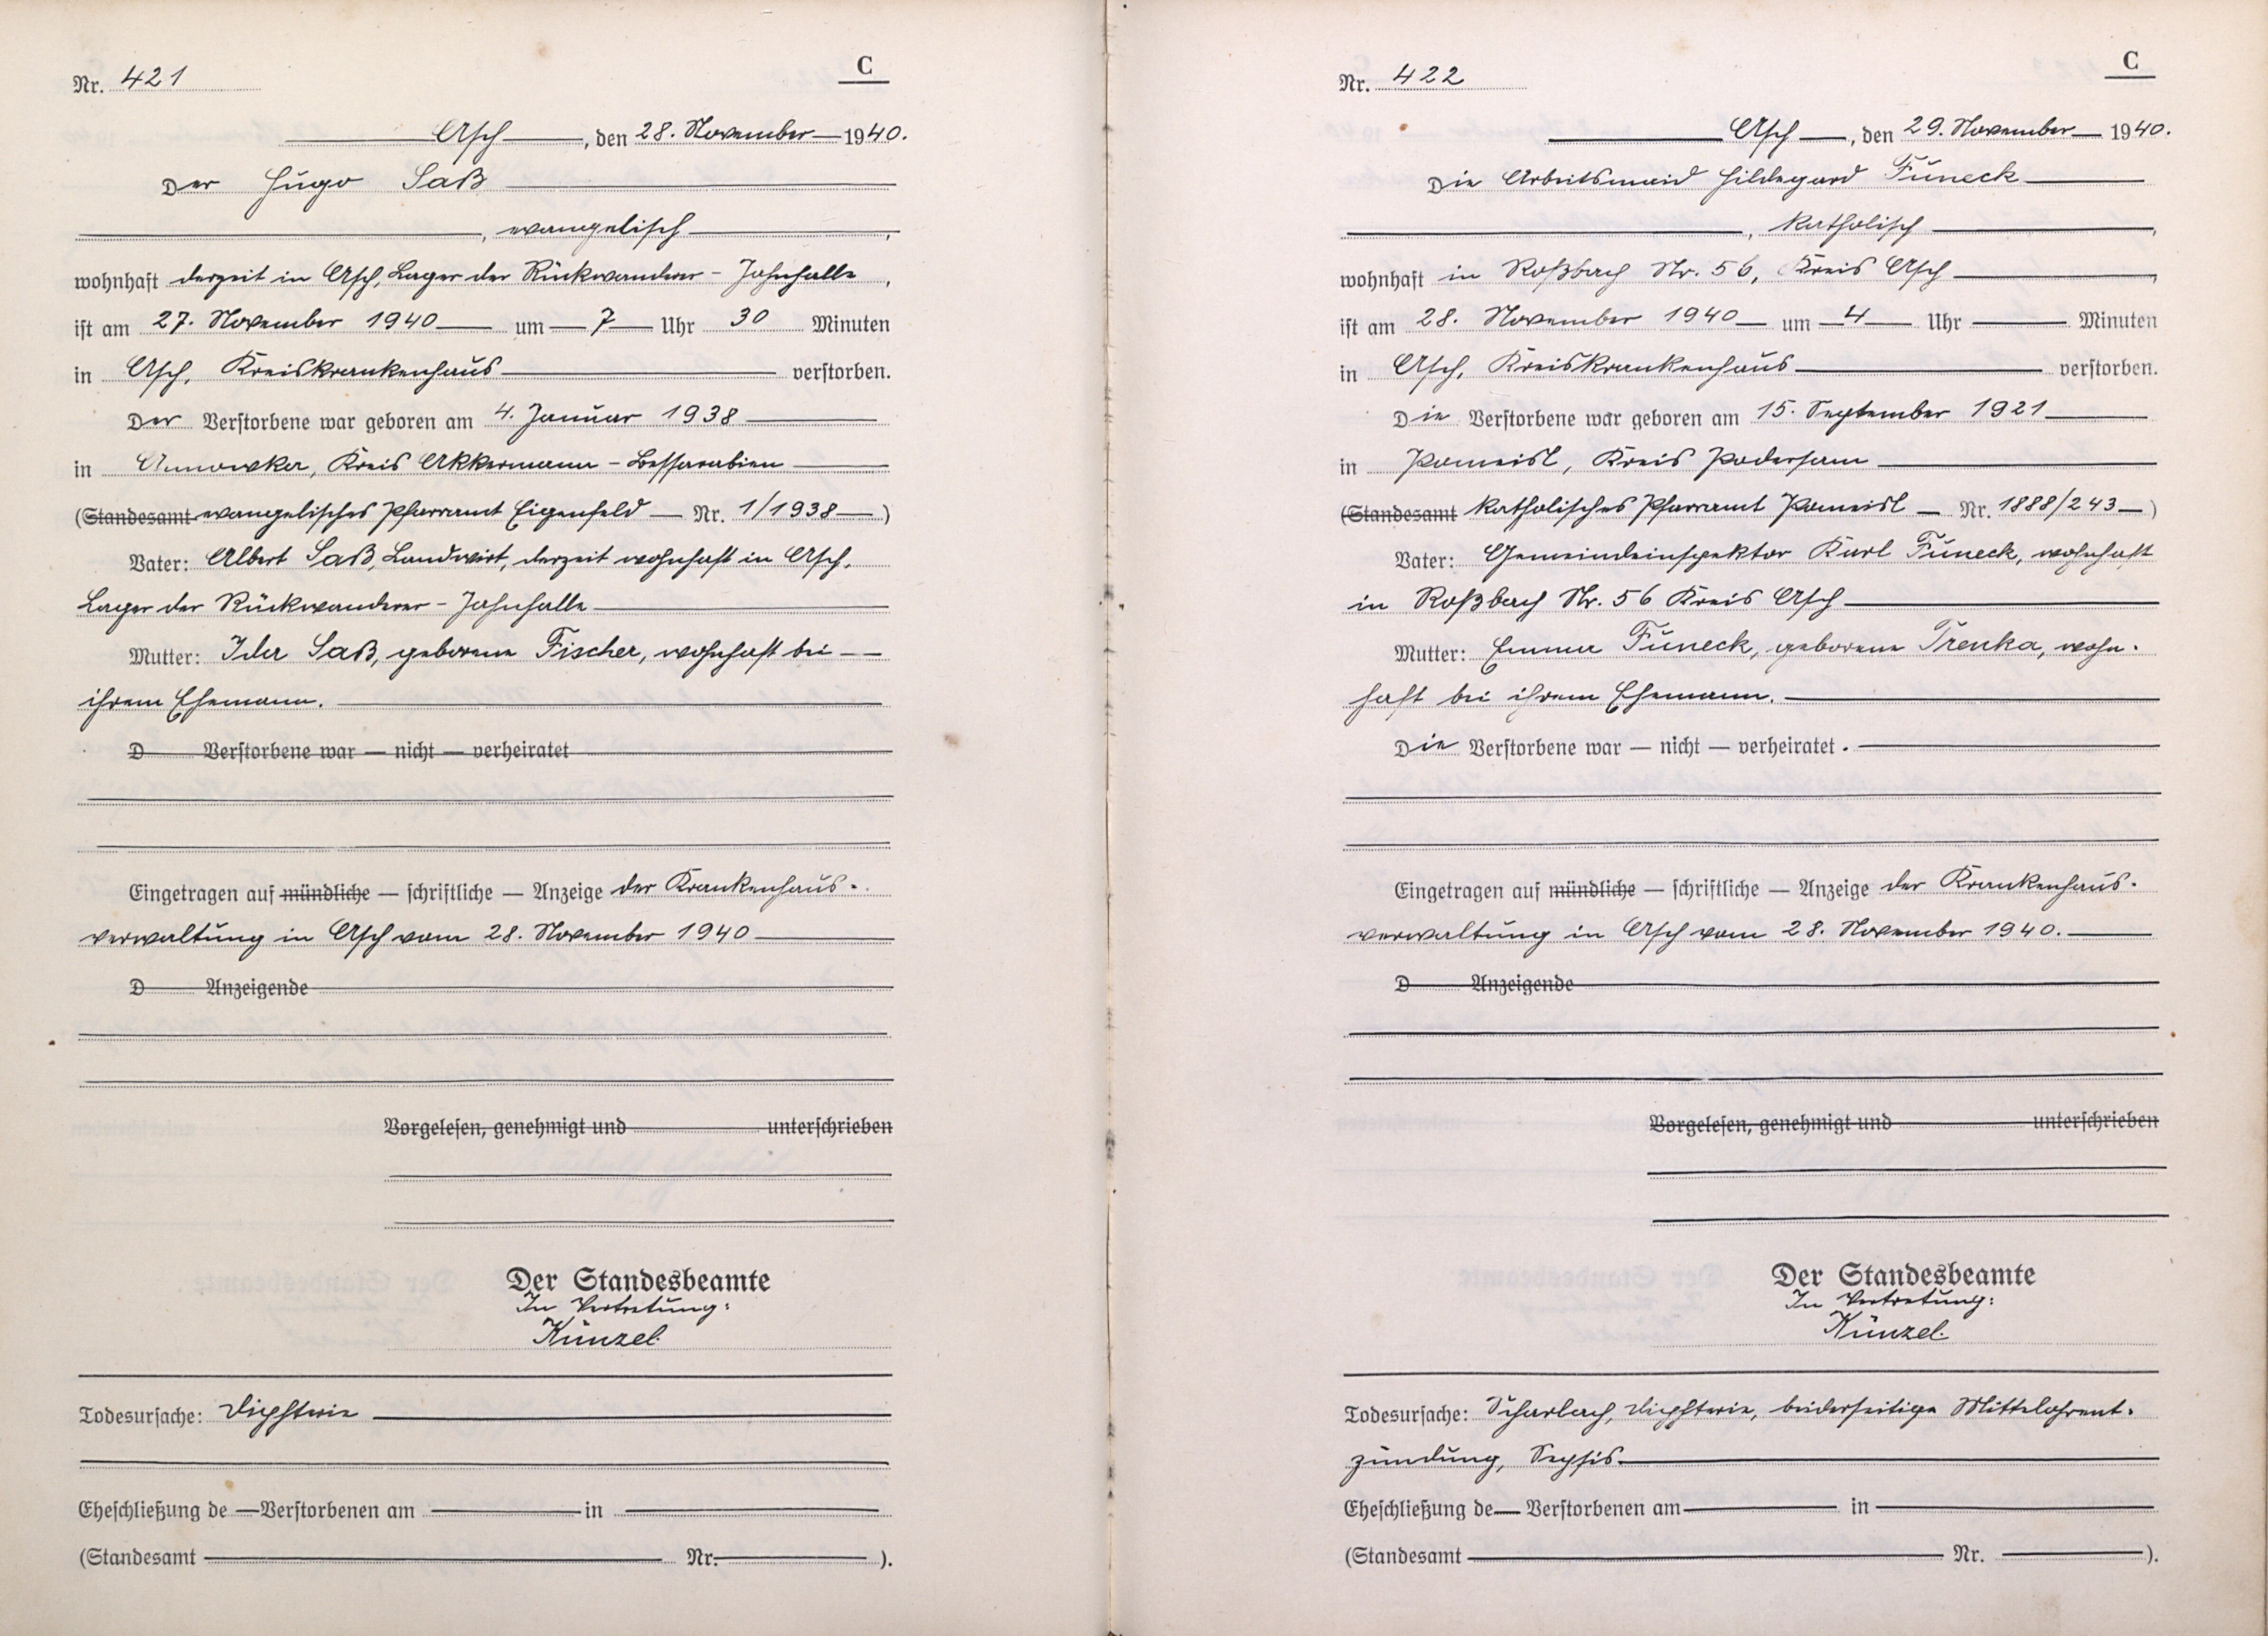 Nr. 421
C
Asch, den 28. November 1940.
Der Hugo Saß
, evangelisch,
wohnhaft derzeit in Asch, Lager der Rückwanderer - Jahnhalle,
ist am 27. November 1940 um 7 Uhr 30 Minuten
in Asch, Kreiskrankenhaus verstorben.
Der Verstorbene war geboren am 4. Januar 1938
in Annowka, Kreis Akkermann - Bessarabien
(Standesamt evangelisches Pfarramt Eigenfeld — Nr. 1/1938 —)
Vater: Albert Saß, Landwirt, derzeit wohnhaft in Asch,
Lager der Rückwanderer - Jahnhalle
Mutter: Ida Saß, geborene Fischer, wohnhaft bei
ihrem Ehemann.
D Verstorbene war — nicht — verheiratet
Eingetragen auf mündliche — schriftliche — Anzeige der Krankenhaus-
verwaltung in Asch vom 28. November 1940
D Anzeigende
Vorgelesen, genehmigt und unterschrieben
Der Standesbeamte
In Vertretung:
Künzel.
Todesursache: Diphterie
Eheschließung de Verstorbenen am in
(Standesamt Nr. ).
Nr. 422
C
Asch, den 29. November 1940.
Die Arbeitsmaid Hildegard Funeck
, katholisch,
wohnhaft in Roßbach Nr. 56, Kreis Asch,
ist am 28. November 1940 um 4 Uhr Minuten
in Asch, Kreiskrankenhaus verstorben.
Die Verstorbene war geboren am 15. September 1921
in Pomeisl, Kreis Podersam
(Standesamt katholisches Pfarramt Pomeisl — Nr. 1888/243 —)
Vater: Gemeindeinspektor Karl Funeck, wohnhaft
in Roßbach Nr. 56 Kreis Asch
Mutter: Emma Funeck, geborene Trenka, wohn-
haft bei ihrem Ehemann.
Die Verstorbene war — nicht — verheiratet.
Eingetragen auf mündliche — schriftliche — Anzeige der Krankenhaus-
verwaltung in Asch vom 28. November 1940.
D Anzeigende
Vorgelesen, genehmigt und unterschrieben
Der Standesbeamte
In Vertretung:
Künzel.
Todesursache: Scharlach, Diphterie, beiderseitige Mittelohrent-
zündung, Sepsis.
Eheschließung de Verstorbenen am in
(Standesamt Nr. ).